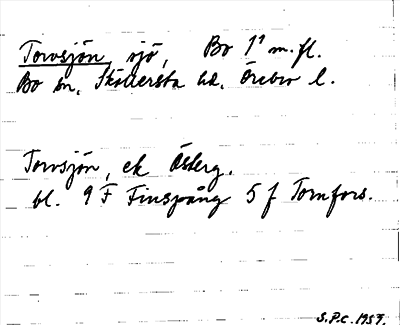 Torvsjön, sjö, Bo 1¹ m.fl.
Bo sn, Sköllersta hd, Örebro l.
Torvsjön, ek Österg.
bl. 9 F Finspång 5 f Tornfors.
S.P.C. 1959.